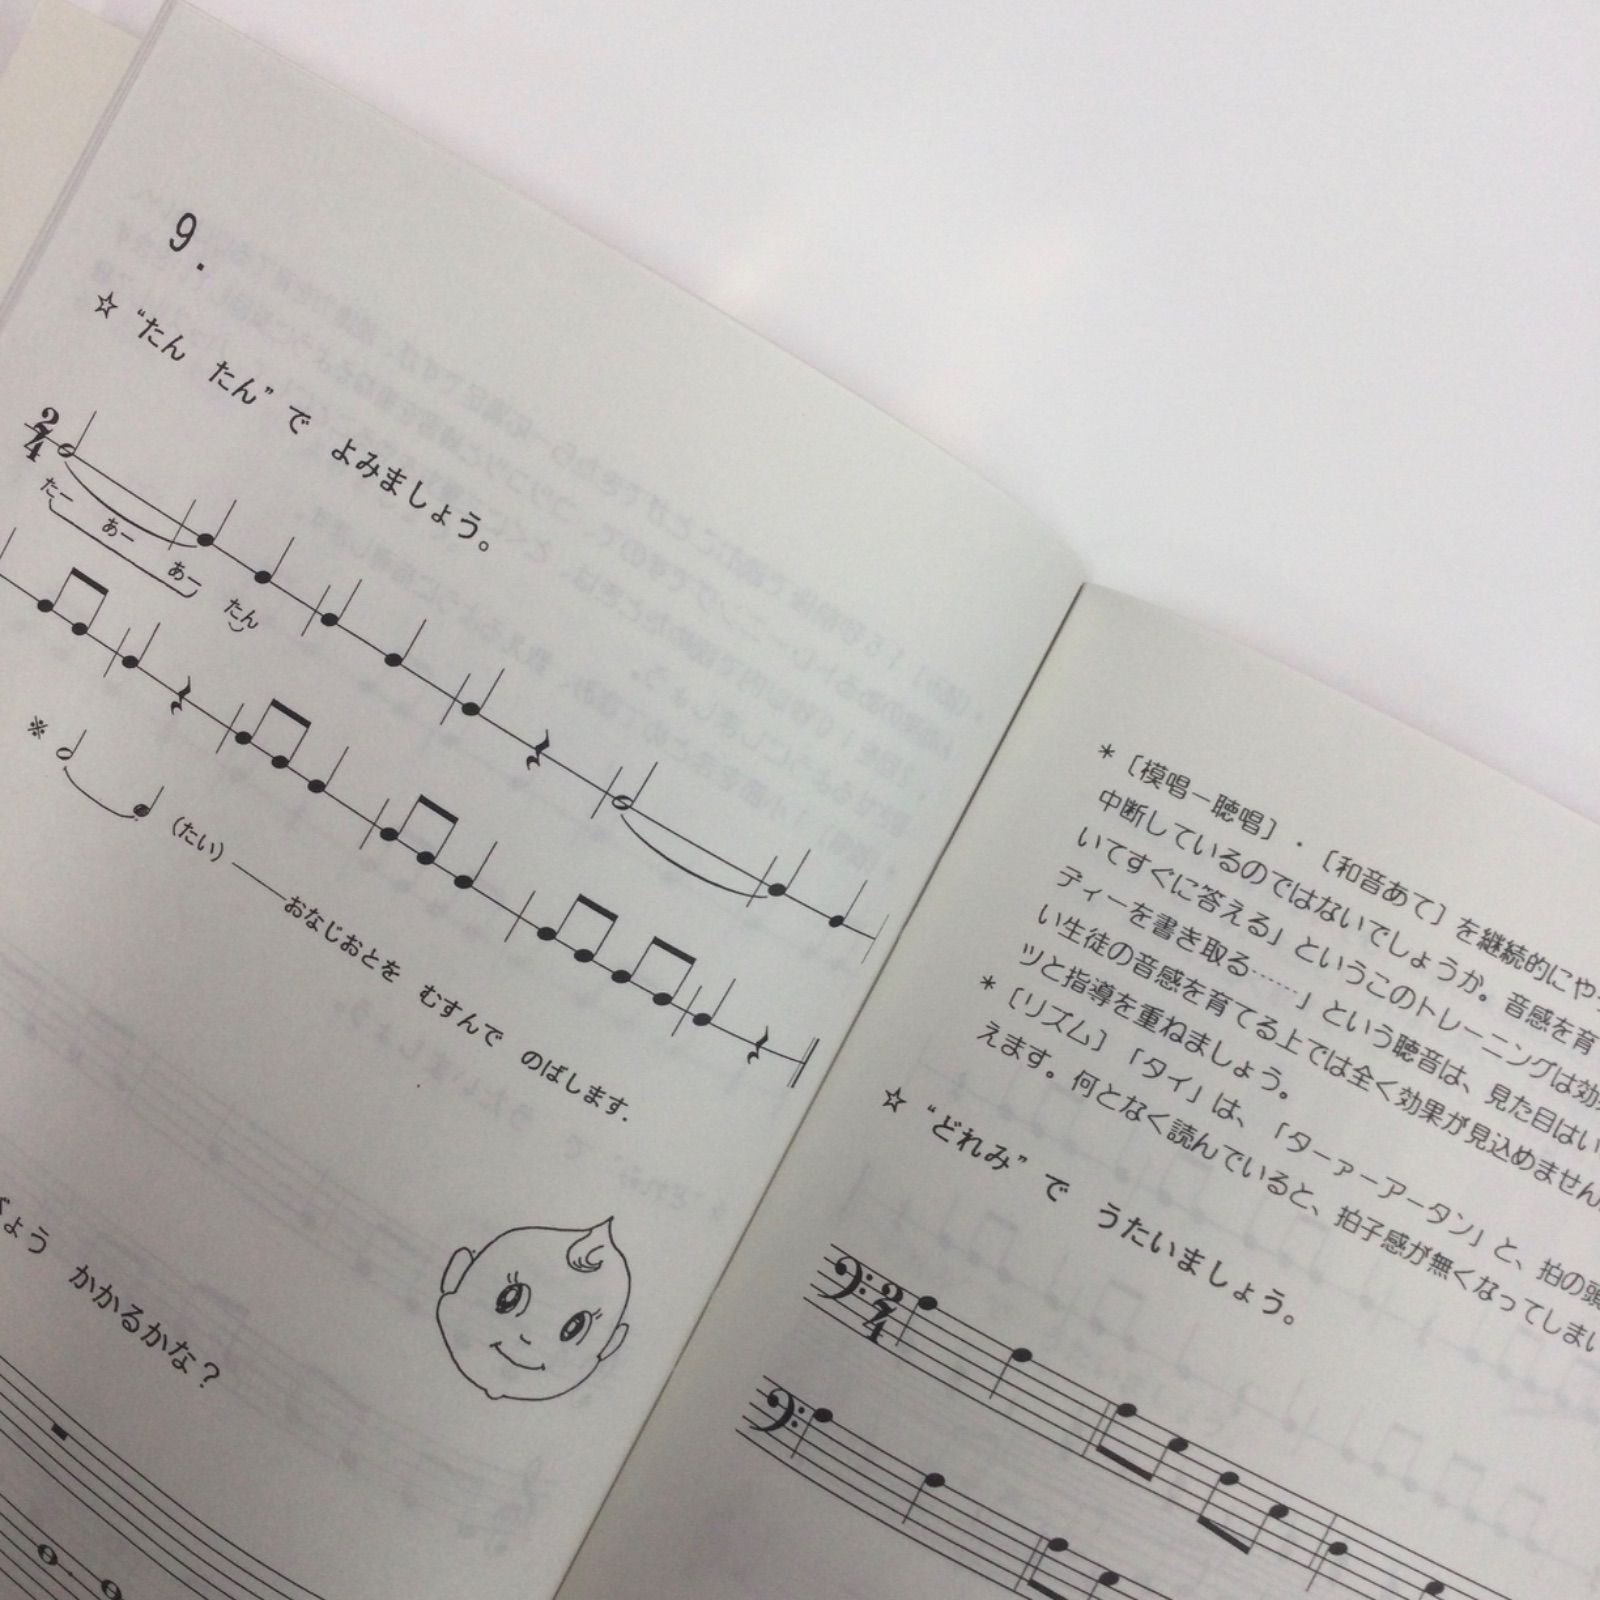 9.
☆ “たん たん” で よみましょう。
2
4
たー あー あー たん
※ (たい)——おなじおとを むすんで のばします.
かかるかな？
* 〔模唱－聴唱〕・〔和音あて〕を継続的にや
中断しているのではないでしょうか。音感を育
いてすぐに答える」というこのトレーニングは効
ディーを書き取る……」という聴音は、見た目はい
い生徒の音感を育てる上では全く効果が見込めません
ツと指導を重ねましょう。
* 〔リズム〕「タイ」は、「ターァーアータン」と、拍の頭
えます。何となく読んでいると、拍子感が無くなってしまい
☆ “どれみ” で うたいましょう。
2
4